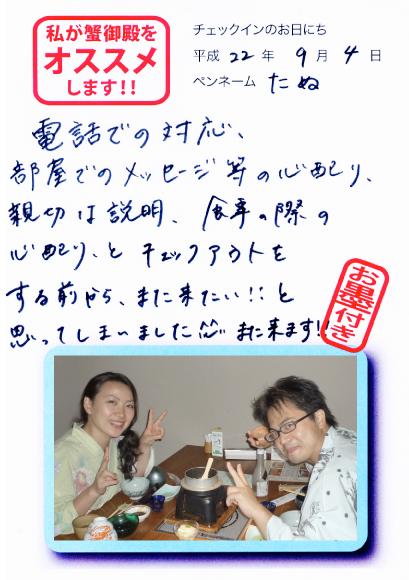 私が蟹御殿を
オススメ
します!!
チェックインのお日にち
平成 22 年 9 月 4 日
ペンネーム たぬ
電話での対応、
部屋でのメッセージ等の心配り、
親切は説明、食事の際の
心配り、と チェックアウトを
する前から、また来たい!! と
思ってしまいました また来ます!!
お墨付き